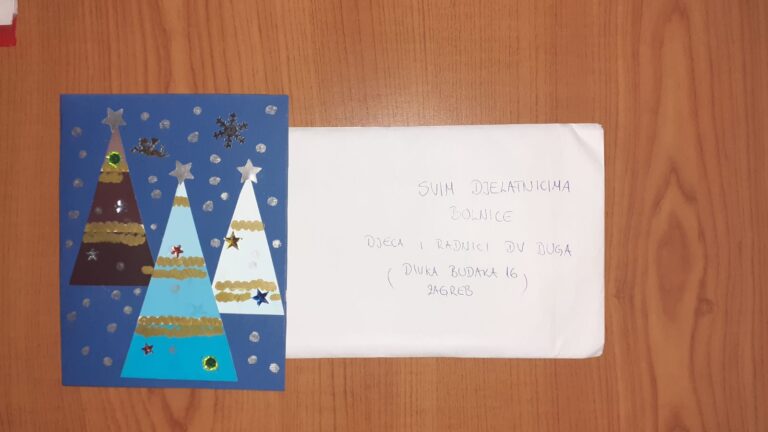 SVIM DJELATNICIMA
BOLNICE
DJECA I RADNICI DV DUGA
( DIVKA BUDAKA 1G )
ZAGREB